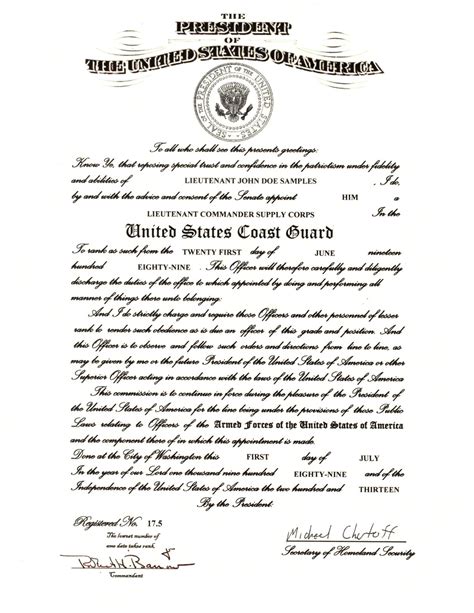 THE
PRESIDENT
OF
THE UNITED STATES OF AMERICA
SEAL OF THE PRESIDENT OF THE UNITED STATES
To all who shall see this presents greetings:
Know Ye, that reposing special trust and confidence in the patriotism under fidelity
and abilities of LIEUTENANT JOHN DOE SAMPLES , I do,
by and with the advice and consent of the Senate appoint HIM a
LIEUTENANT COMMANDER SUPPLY CORPS In the
United States Coast Guard
To rank as such from the TWENTY FIRST day of JUNE nineteen
hundred EIGHTY-NINE . This Officer will therefore carefully and diligently
discharge the duties of the office to which appointed by doing and performing all
manner of things there unto belonging:
And I do strictly charge and require those Officers and other personnel of lesser
rank to render such obedience as is due an officer of this grade and position. And
this Officer is to observe and follow such orders and directions from line to line, as
may be given by me or the future President of the United States of America or other
Superior Officer acting in accordance with the laws of the United States of America
This commission is to continue in force during the pleasure of the President of
the United States of America for the line being under the provisions of those Public
Laws relating to Officers of the Armed Forces of the United States of America
and the component there of in which this appointment is made.
Done at the City of Washington this FIRST day of JULY
In the year of our Lord one thousand nine hundred EIGHTY-NINE and of the
Independence of the United States of America the two hundred and THIRTEEN
By the President:
Registered No. 17.5
The lowest number of
one date takes rank.
Commandant
Michael Chertoff
Secretary of Homeland Security